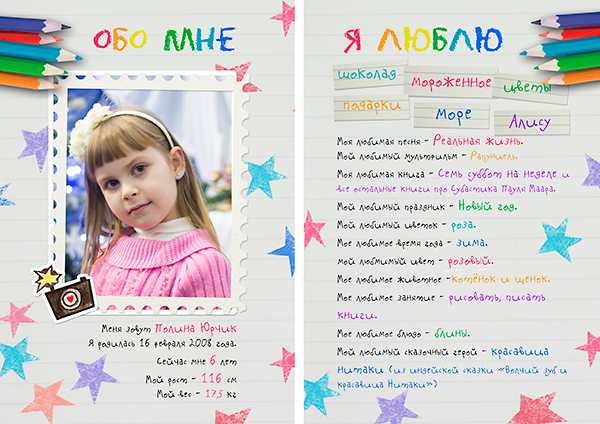 ОБО МНЕ
Меня зовут Полина Юрчик
Я родилась 16 февраля 2008 года.
Сейчас мне 6 лет
Мой рост - 116 см
Мой вес - 17,5 кг
Я ЛЮБЛЮ
шоколад
мороженное
цветы
подарки
море
Алису
Моя любимая песня - Реальная жизнь.
Мой любимый мультфильм - Рапунцель.
Моя любимая книга - Семь суббот на неделе и
все остальные книги про Субастика Пауля Маара.
Мой любимый праздник - Новый год.
Мой любимый цветок - роза.
Мое любимое время года - зима.
мой любмимый цвет - розовый.
Мое любимое животное - котёнок и щенок.
Мое любимое занятие - рисовать, писать
книги.
Мое любимое блюдо - блины.
Мой любимый сказочный герой - красавица
Нитаки (из индейской сказки «Волчий зуб и
красавица Нитаки»)